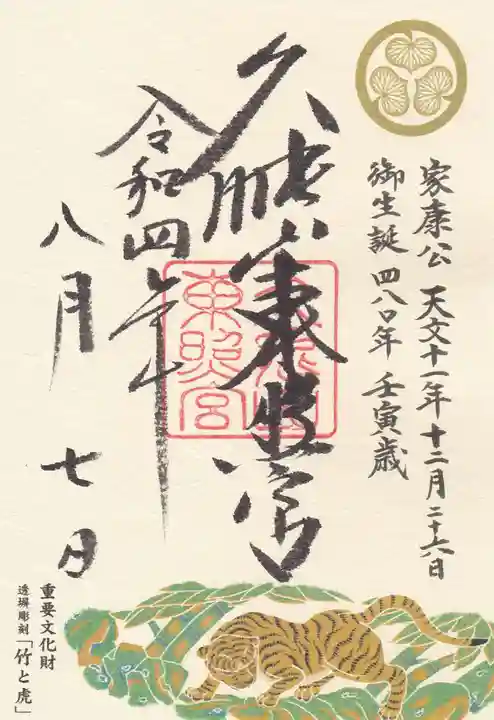 家康公 天文十一年 十二月二十六日
御生誕 四八〇年 壬寅歳
久能山東照宮
令和四年
八月 七日
東照宮
重要文化財
透塀彫刻「竹と虎」